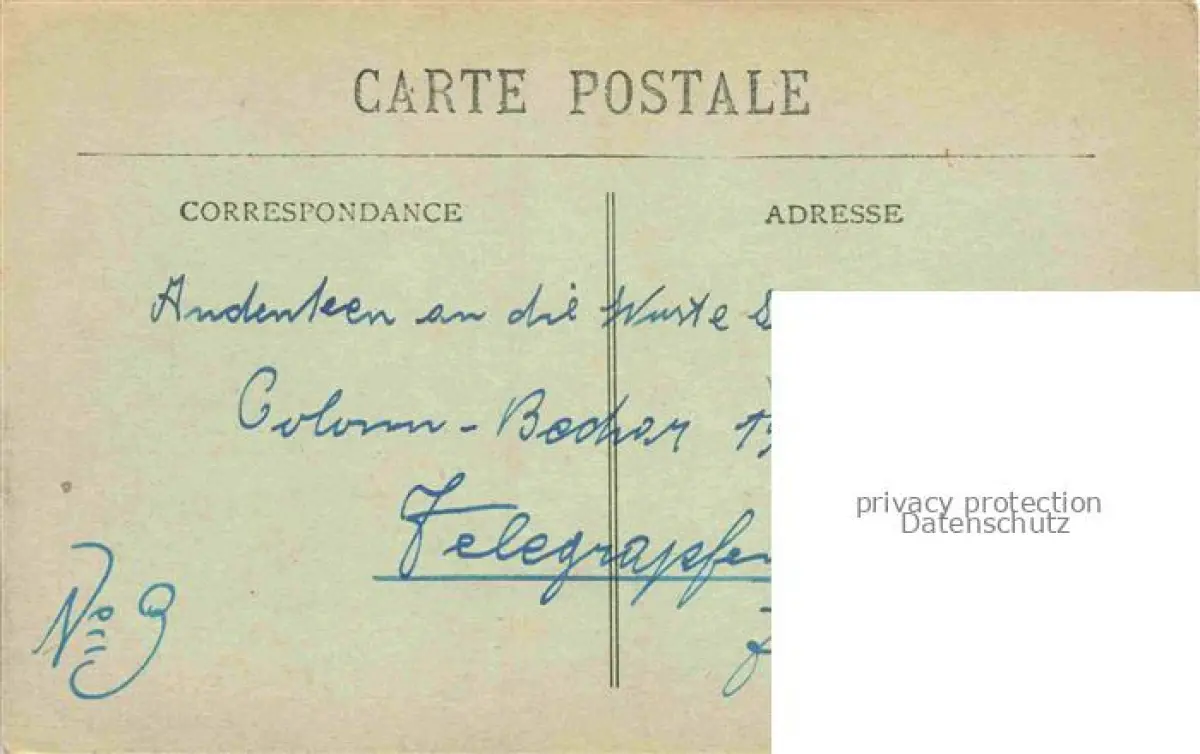 CARTE POSTALE
CORRESPONDANCE
ADRESSE
Andenken an die Wuste
Colomn-Bechar 19
Telegrapfen
No 9
privacy protection
Datenschutz